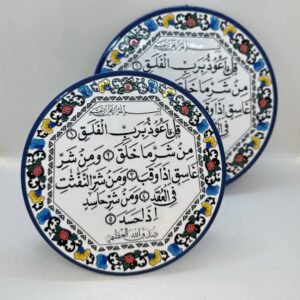 بسم الله الرحمن الرحيم
قل أعوذ برب الفلق ١
من شر ما خلق ٢ ومن شر
غاسق إذا وقب ٣ ومن شر النفثت
في العقد ٤ ومن شر حاسد
إذا حسد ٥
صدق الله العظيم
بسم الله الرحمن الرحيم
قل أعوذ برب الفلق
من شر ما خلق